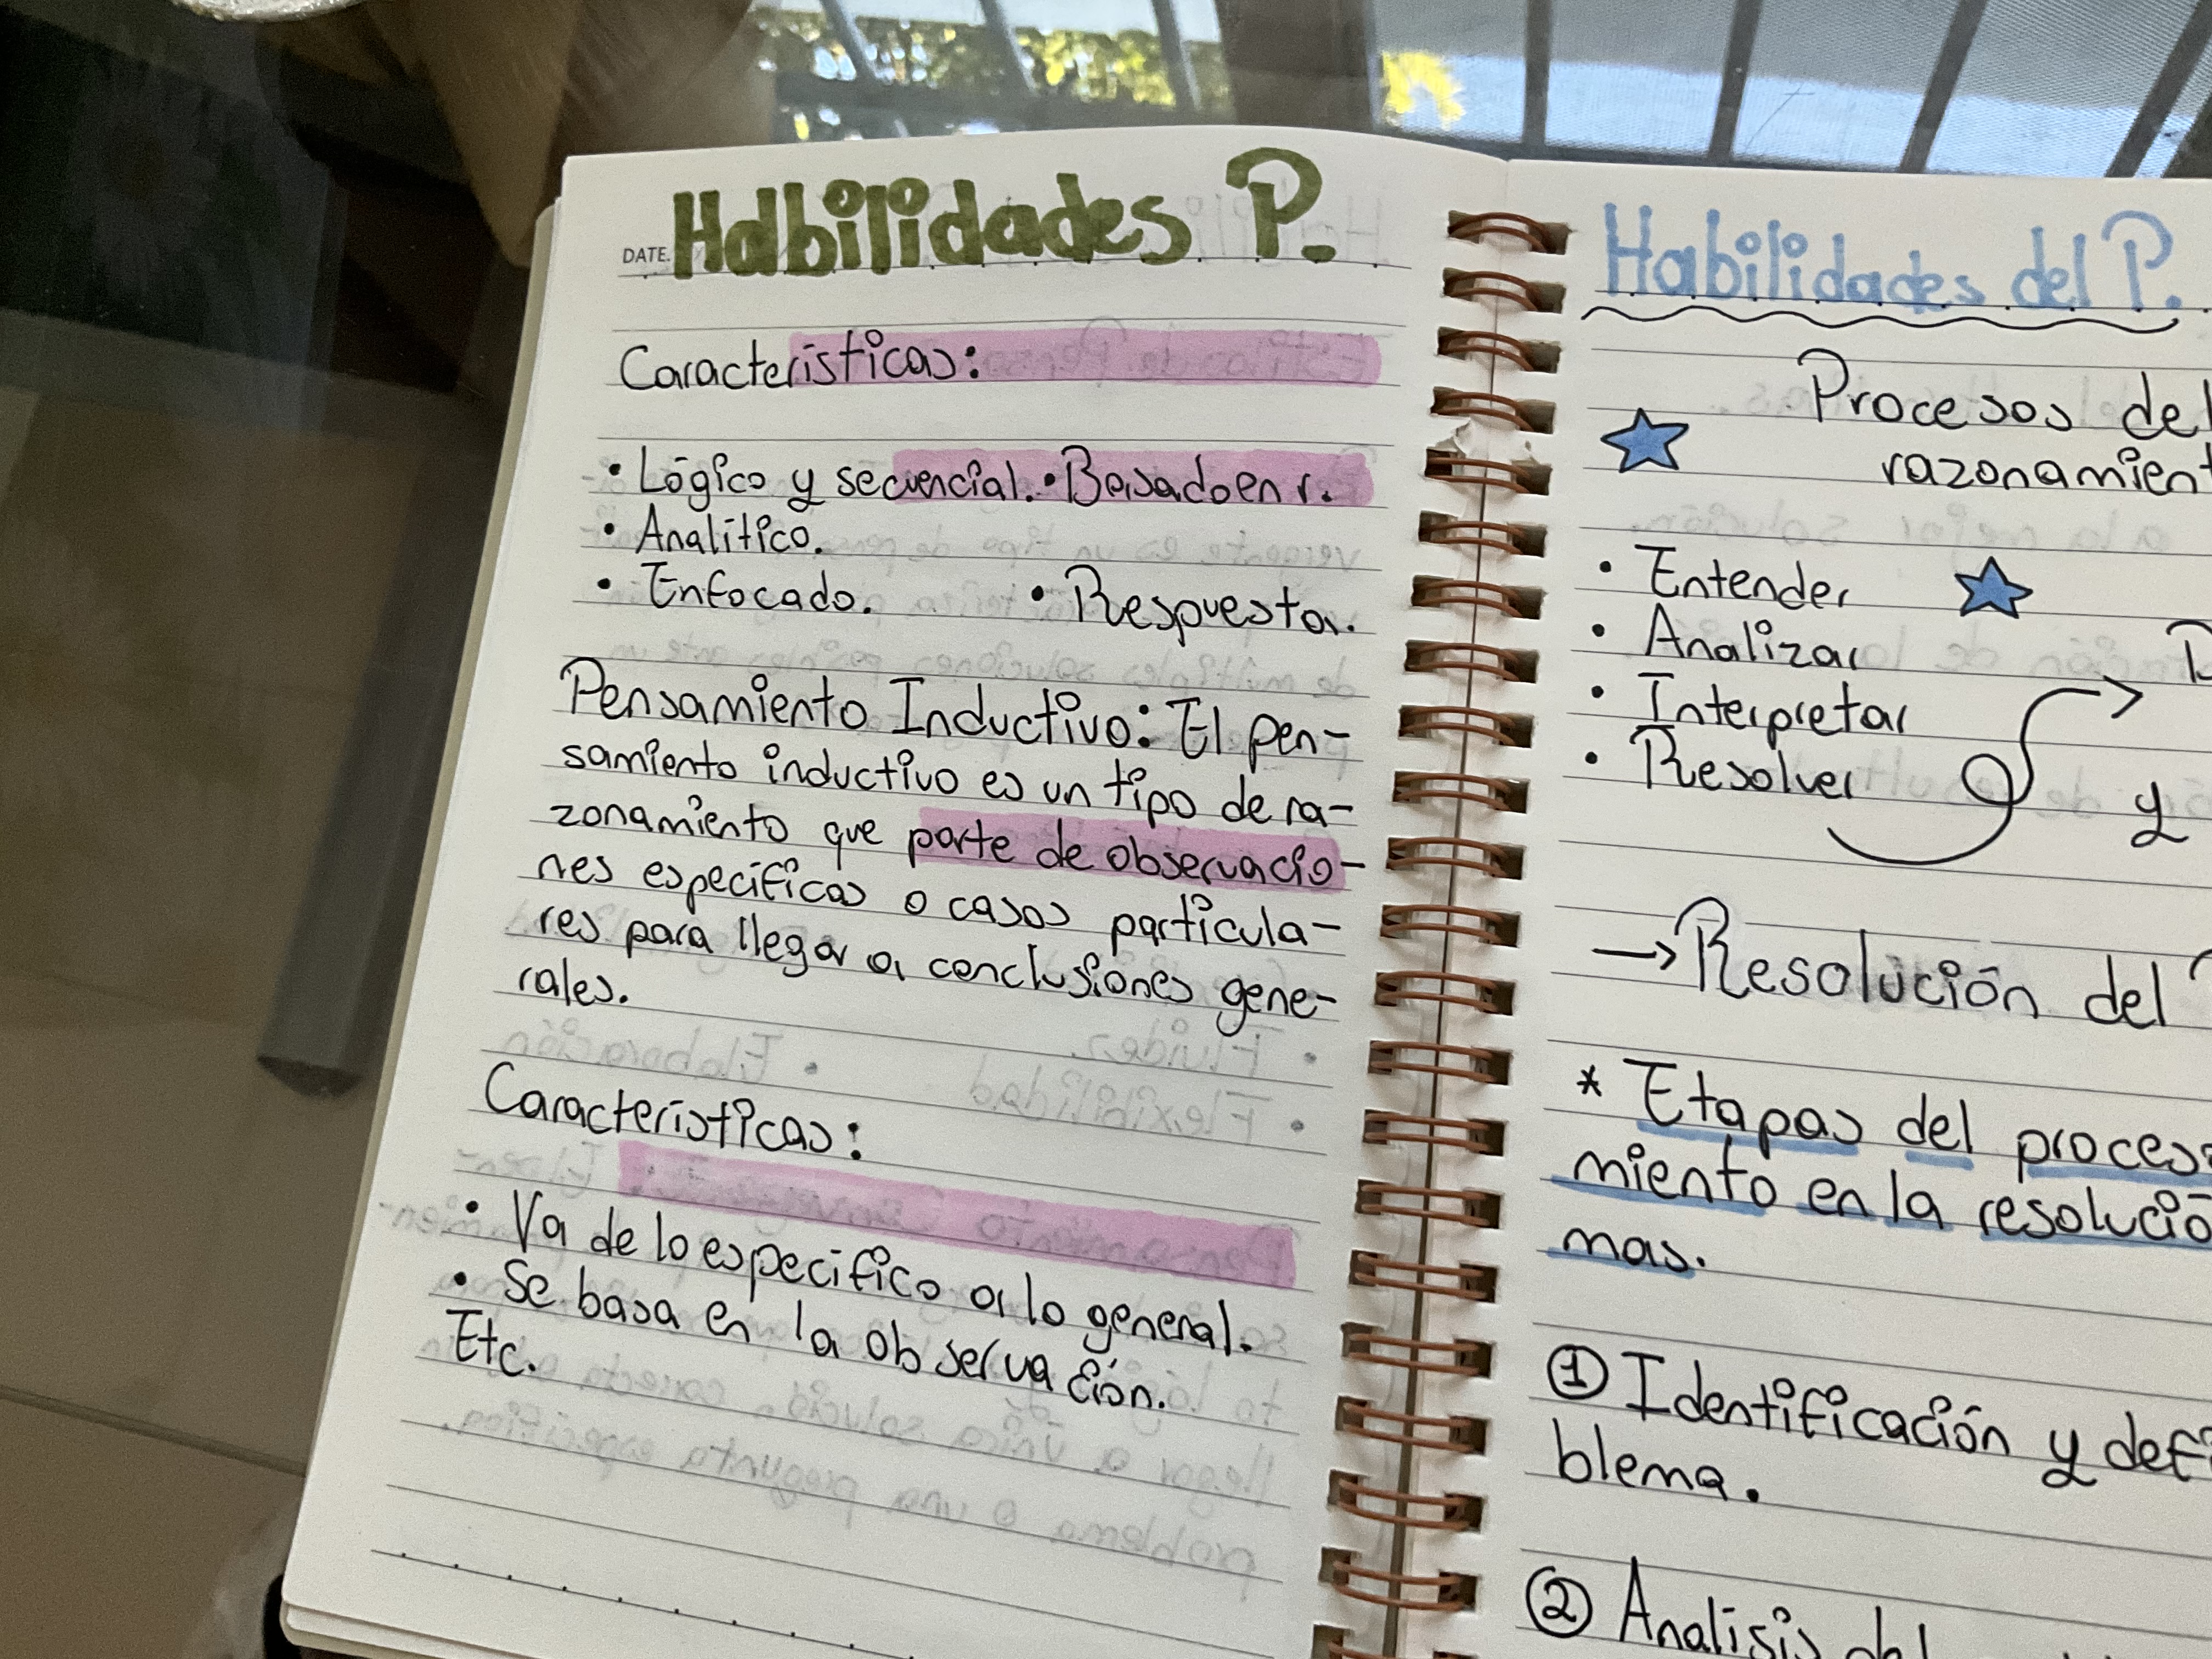 Habilidades P.
DATE.
Características:
• Lógico y secuencial. • Basado en r.
• Analítico.
• Enfocado. • Respuesta.
Pensamiento Inductivo: El pen-
samiento inductivo es un tipo de ra-
zonamiento que parte de observacio-
nes especificas o casos particula-
res para llegar a conclusiones gene-
rales.
Características:
• Va de lo especifico a lo general.
• Se basa en la observación.
Etc.
Habilidades del P.
Procesos del
razonamient
• Entender
• Analizar
• Interpretar
• Resolver
y
→ Resolución del
* Etapas del proces
miento en la resolucio
mas.
① Identificación y def
blema.
② Analisis del